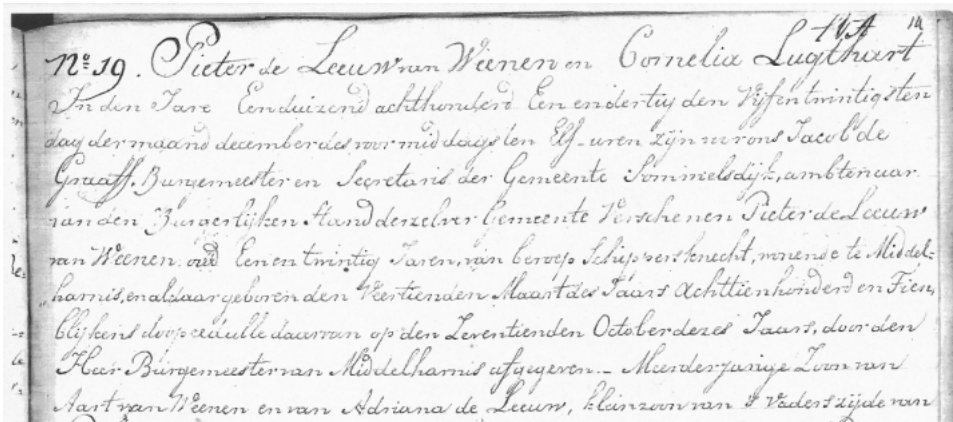 14
No 19. Pieter de Leeuw van Weenen en Cornelia Lugthart
In den Jare Eenduizend achthonderd Een en dertig den Vyfentwintigsten
dag der maand december des voormiddags ten Elf uren zyn voor ons Jacob de
Graaff, Burgemeester en Secretaris der Gemeente Sommelsdyk, ambtenaar
van den Burgerlyken Stand derzelver Gemeente Verschenen Pieter de Leeuw
van Weenen oud Eenentwintig Jaren, van beroep Schippersknecht, wonende te Middel=
„harnis, en aldaar geboren den Veertienden Maart des Jaars Achttienhonderd en Tien,
blykens doopcedulle daarvan op den Zeventienden October dezes Jaars, door den
Heer Burgemeester van Middelharnis afgegeven._ Meerderjarige Zoon van
Aart van Weenen en van Adriana de Leeuw, kleinzoon van 's Vaders zyde van